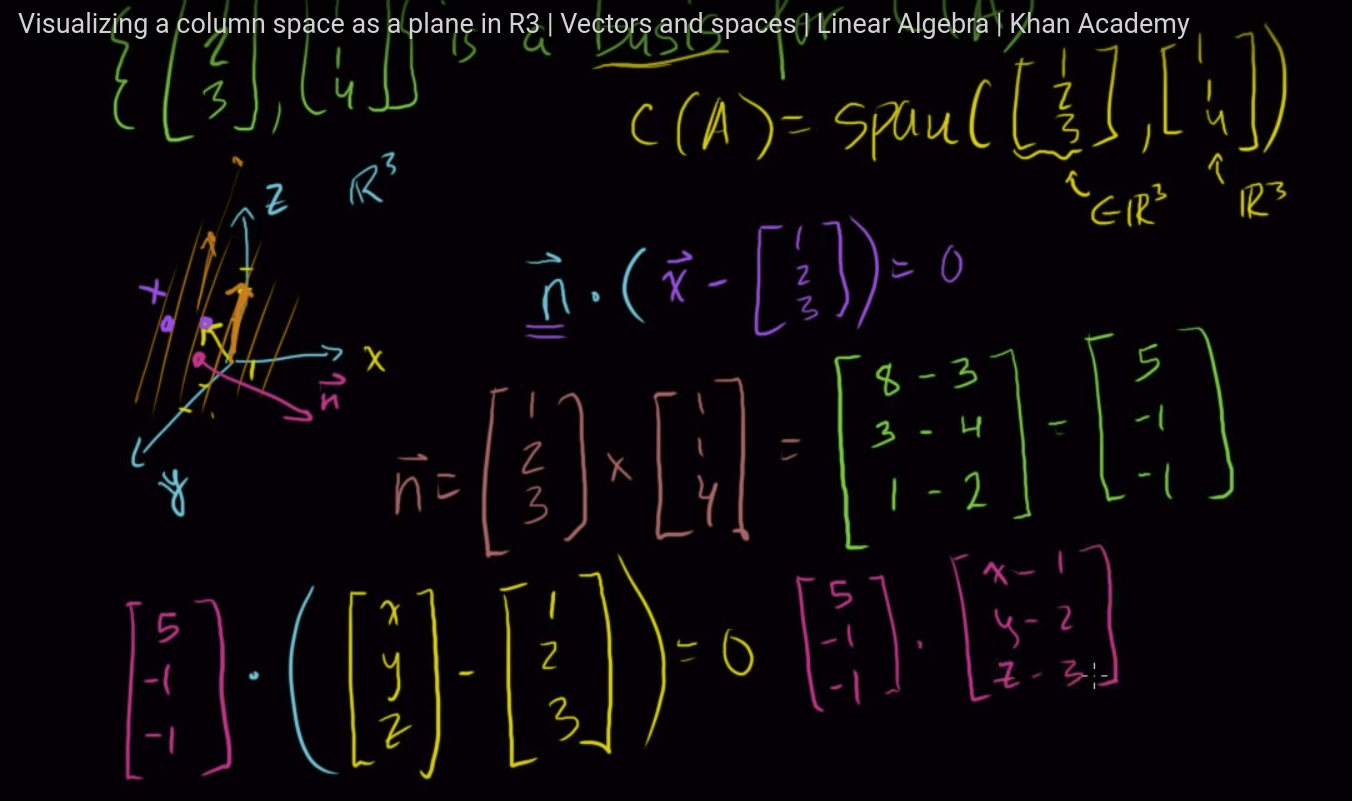 Visualizing a column space as a plane in R3 | Vectors and spaces | Linear Algebra | Khan Academy
{[2 3], [1 4]} is a basis for (A)
C(A) = span([1 2 3], [1 1 4])
∈ℝ³ ℝ³
z ℝ³
x
n⃗
y
n⃗ · (x⃗ - [1 2 3]) = 0
n⃗ = [1 2 3] × [1 1 4] = [8 - 3 3 - 4 1 - 2] = [5 -1 -1]
[5 -1 -1] · ([x y z] - [1 2 3]) = 0 [5 -1 -1] · [x - 1 y - 2 z - 3]